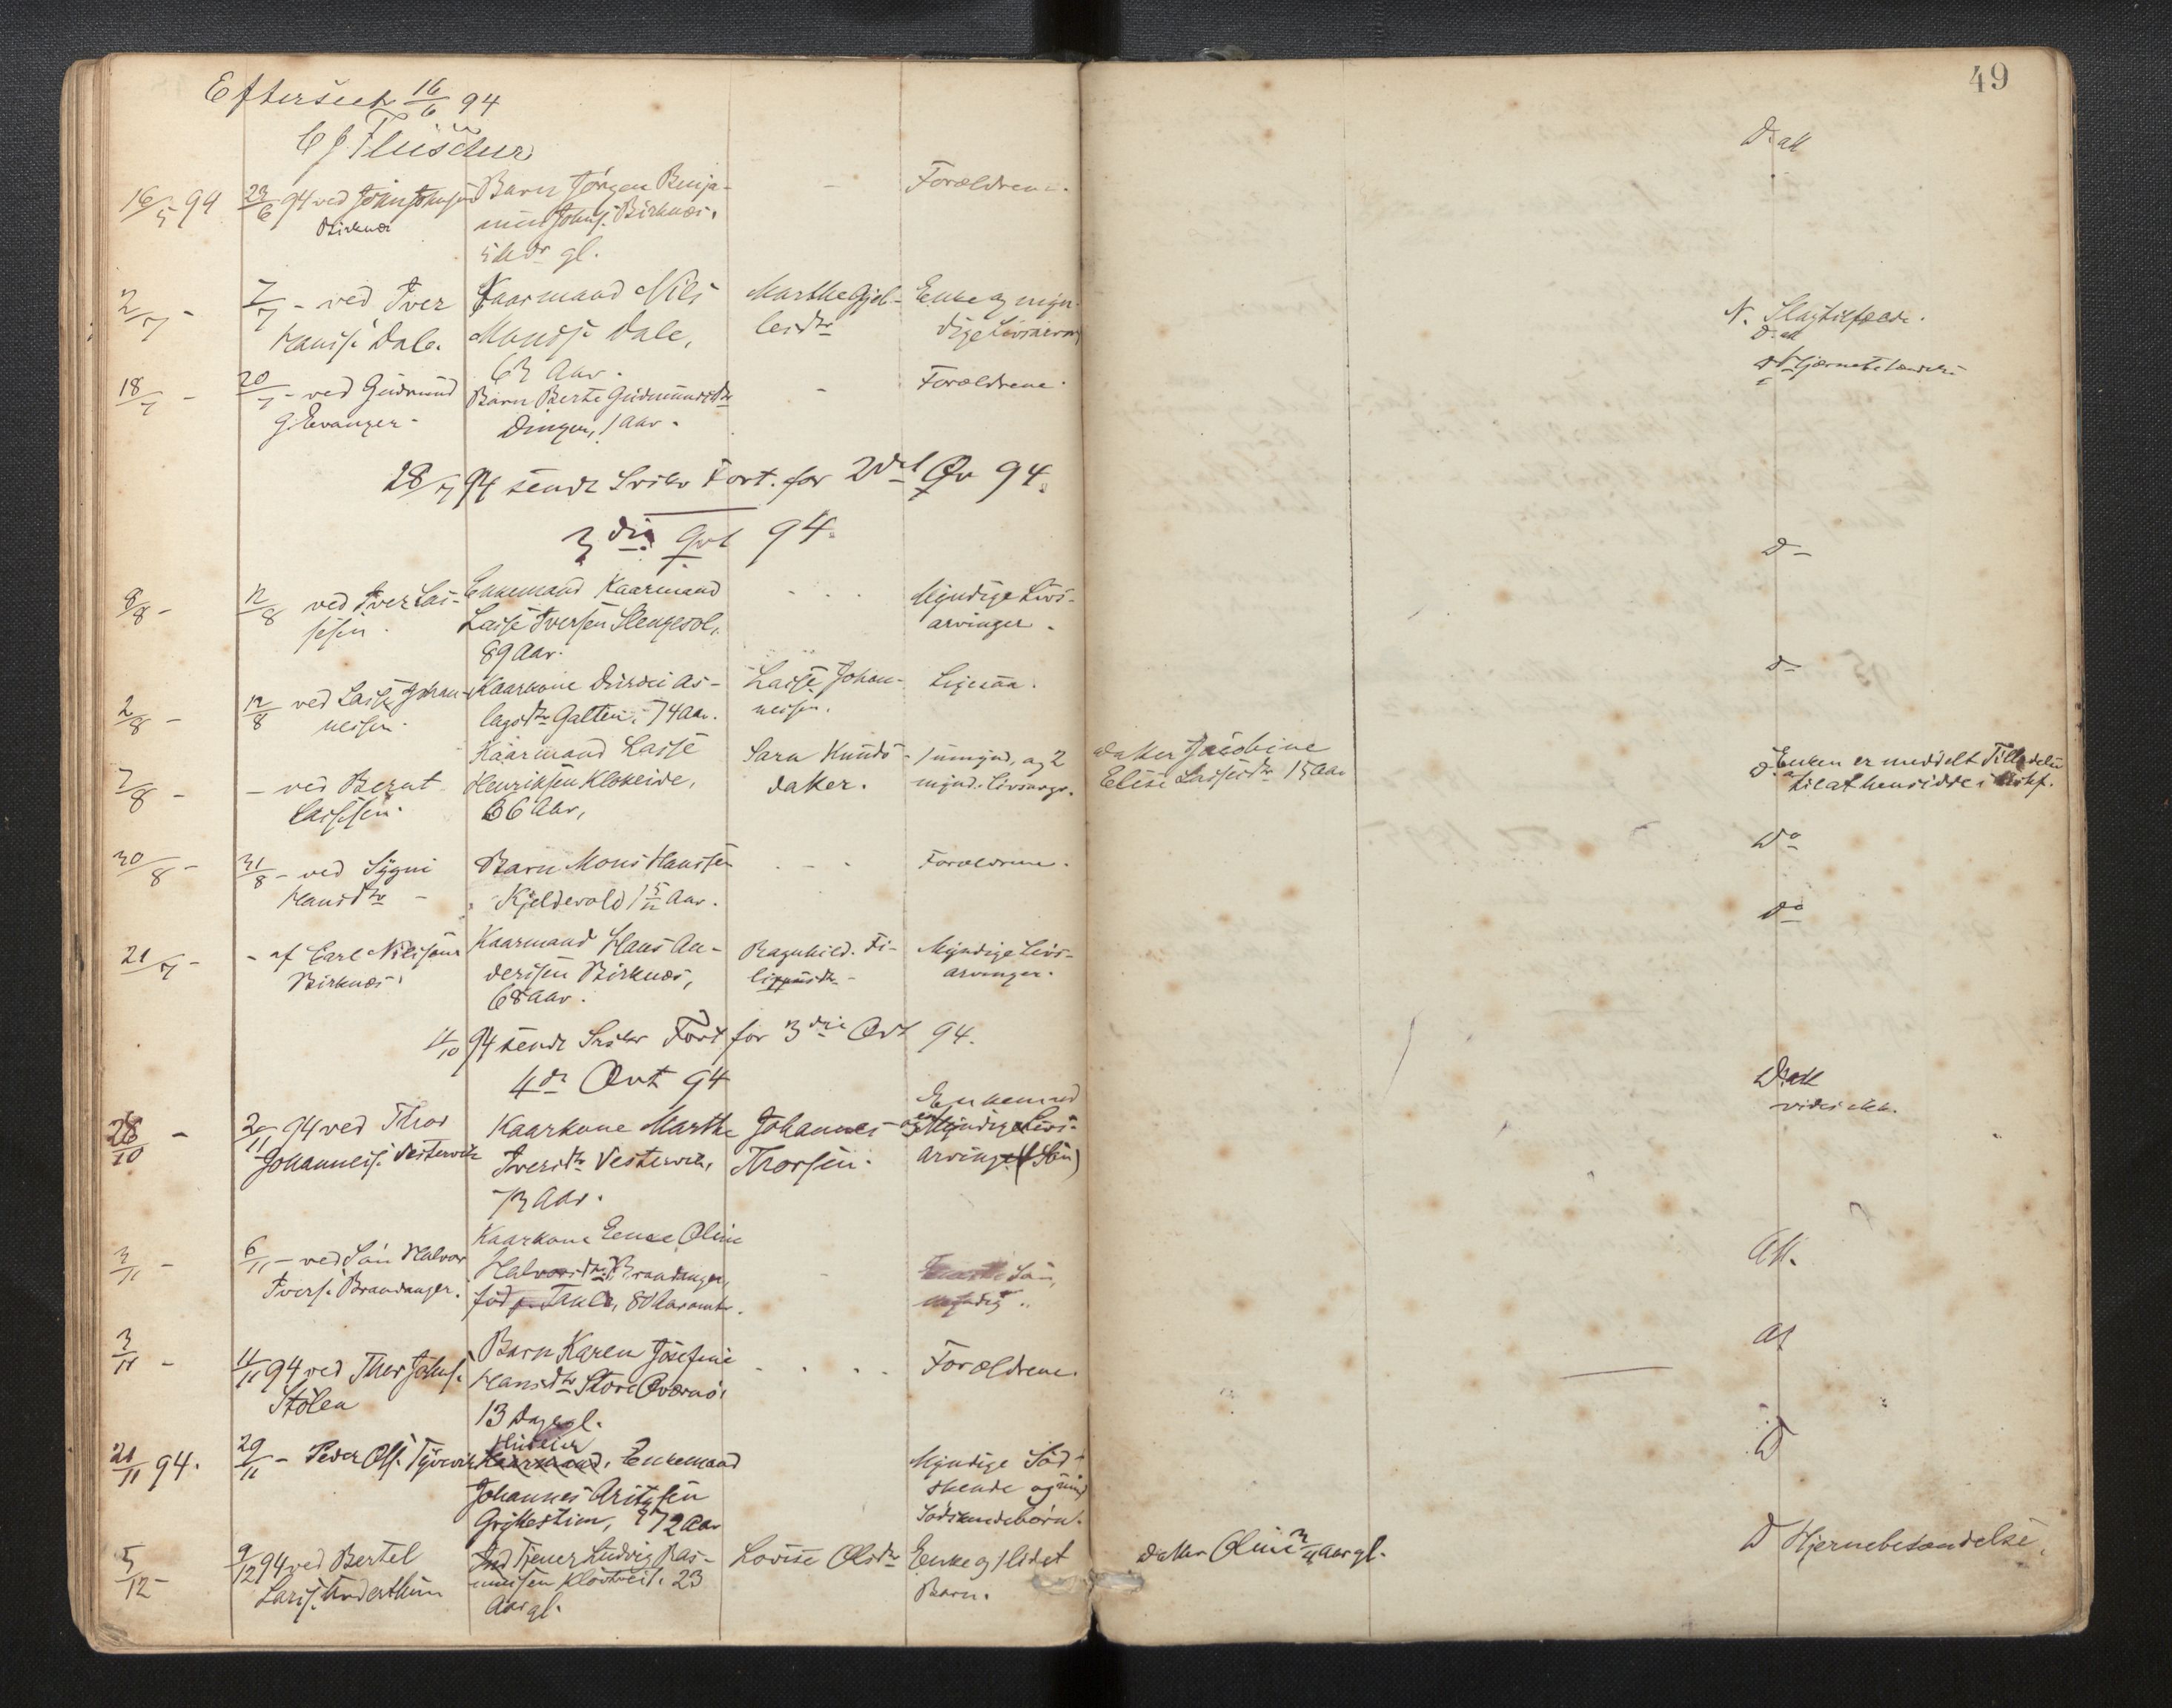 49
Efterseet 16/6 94
C J Fleischer
16/5 94
23/6 94 ved
Birknæs
Barn Jørgen Benja-
min Johns. Birknæs.
5 Mdr gl.
-
Forældrene.
D. att
2/7 -
7/7 - ved Iver
Hanss. Dale.
Kaarmand Nils
Monss. Dale,
63 Aar.
Marthe
Enke og myn-
dige Livsarving
N. Slagtilfælde.
D. att
18/7 -
20/7 - ved Gudmund
G. Evanger -
Barn Berte Gudmundsdtr
Dingen, 1 Aar.
-
Forældrene.
Hjernebetændelse
28/7 94 sendt Sorskr Fort. for 2det Qv 94.
3die Qvt 94.
8/8 -
12/8 ved Iver Las-
sesen.
Enkemand Kaarmand
Lasse Iversen Slengesol,
89 Aar.
- - -
Myndige Livs-
arvinger.
D -
2/8 -
12/8 ved Lasse Johan-
nessen.
Kaarkone As-
lagsdtr Galten, 74 Aar.
Lasse Johan-
nessen.
Ligesaa.
D -
7/8 -
- ved Bernt
Lassesen.
Kaarmand Lasse
Henriksen Klokeide,
66 Aar,
Sara Knuds-
datter.
1 umynd. og 2
mynd. Livsarvgr.
datter Jacobine
Elise Lassesdtr 15 Aar
Enken er meddelt Tilladelse
til at hensidde i Uskf.
30/8 -
31/8 - ved Sygni
Hansdtr -
Barn Mons Hanssen
Kjeldevold 1 5/12 Aar.
- - -
Forældrene.
Do
21/7 -
- af Carl Nilssens
Birknæs.
Kaarmand Hans An-
derssen Birknæs,
68 Aar.
Ragnhild Fi-
lippusdtr -
Myndige Livs-
arvinger.
Do
11/10 94 sendt Sorskr Fort for 3die Qvt 94.
4de Qvt 94
28/10 -
2/11 94 ved Thor
Johanness. Vestervik
Kaarkone Marthe
Iversdtr Vestervik,
73 Aar.
Johannes
Thorsen.
Enkemand
og Myndige Livs-
arving (Søn)
D. att
3/11 -
6/11 - ved Søn Halvor
Ivers. Brandanger.
Kaarkone Enke Oline
Halvorsdtr Brandanger,
80 Aar omtr.
-
Søn,
myndig.
Att.
3/11 -
11/11 94 ved Thor Johns.
Stølen
Barn Karen Josefine
Hansdtr Store Qværnø,
13 Dage gl.
- - - -
Forældrene.
At
21/11 94.
29/11 - Peder Ols.
Kaarmand, Enkemand
Johannes
72 Aar
Myndige Sød-
skende og
Sødskendebørn.
D
5/12 -
9/12 94 ved Bertel
Larss. Underthun
Tjener Ludvig Ras-
mussen 23
Aar gl.
Lovise Olsdtr
Enke og 1 lidet
Barn.
datter Oline 3/4 Aar gl.
D Hjernebetændelse.